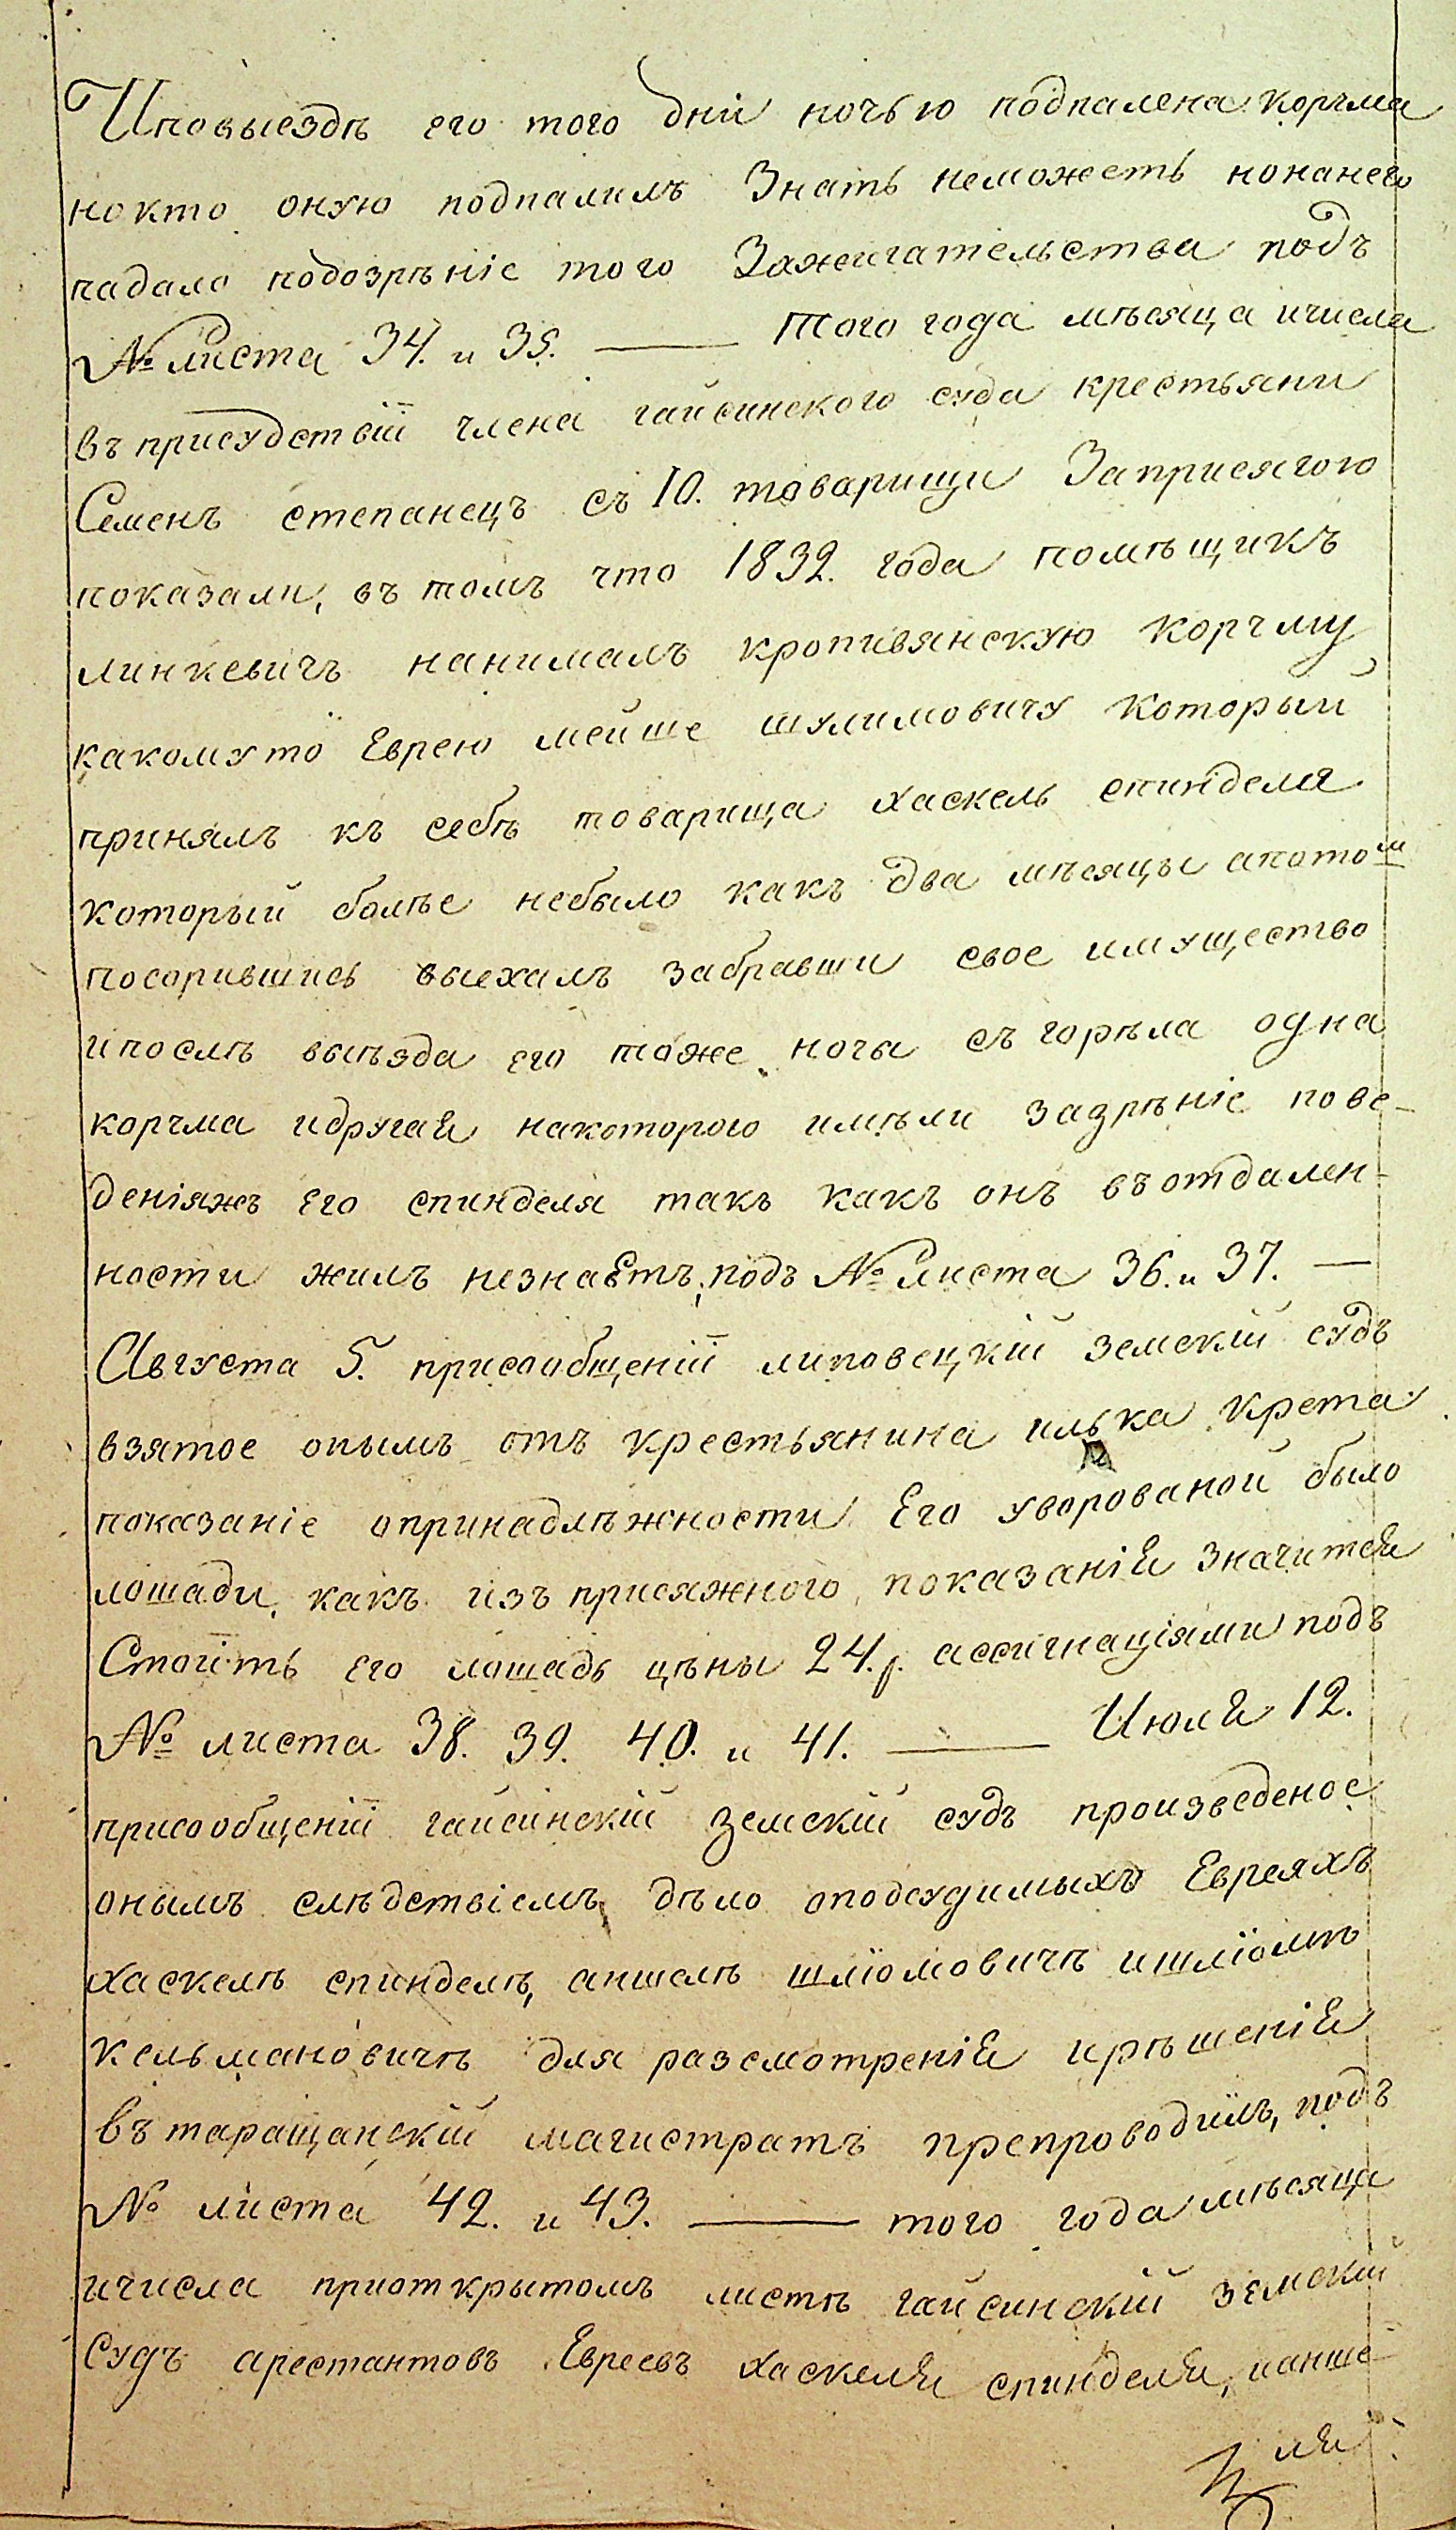 Иповыездѣ его того дни ночью подпалена корчма
нокто оную подпалилъ Знать неможеть нонанего
падало подозрѣніе того Зажигательства подъ
№ листа 34. и 35. —— того года мѣсяца ичисла
въ присудствіи члена гайсинского суда крестьяни
Семенъ степанецъ съ 10. товарищи Заприсягою
показали, въ томъ что 1832. года помѣщикъ
линкевичъ нанималъ кропивянскую корчму
какомуто Еврею мейше шулимовичу который
принялъ къ себѣ товарища хаскель спинделя
который болѣе небыло какъ два мѣсяцы апотом
посорившись выехалъ забравши свое имущество
ипослѣ выѣзда его тоже ночы съгорѣла одна
корчма идругая накоторого имѣли зазрѣніе пове-
деніяжъ его спинделя такъ какъ онъ въотдален-
ности жилъ незнаетъ, подъ № листа 36. и 37. —
Августа 5. присообщеніи липовецкій земскій судъ
взятое онымъ отъ крестьянина илька крета
показаніе опринадлѣжности Его уворованой было
лошади, какъ изъ присяжного показанія значится
Стоитъ его лошадь цѣны 24. р. ассигнаціями подъ
№ листа 38. 39. 40. и 41. —— Июля 12.
присообщеніи гайсинскій земскій судъ произведеное
онымъ слѣдствіемъ дѣло оподсудимыхъ Евреяхъ
хаскелѣ спинделѣ, аншелѣ шліомовичѣ ишліомѣ
кельмановичѣ для разсмотренія ирѣшенія
въ таращанскій магистратъ препроводилъ, подъ
№ листа 42. и 43. —— того года мѣсяца
ичисла приоткрытомъ листѣ гайсинскій земскій
Судъ арестантовъ Евреевъ хаскеля спинделя, ианше
ля